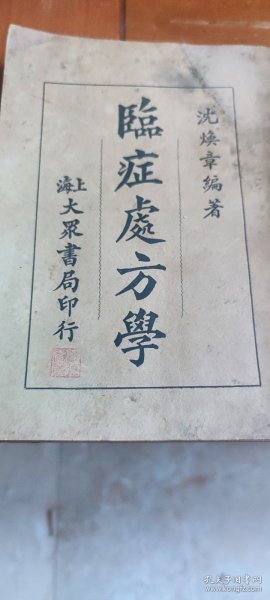 沈煥章編著
臨症處方學
上海大眾書局印行
孔夫子旧书网